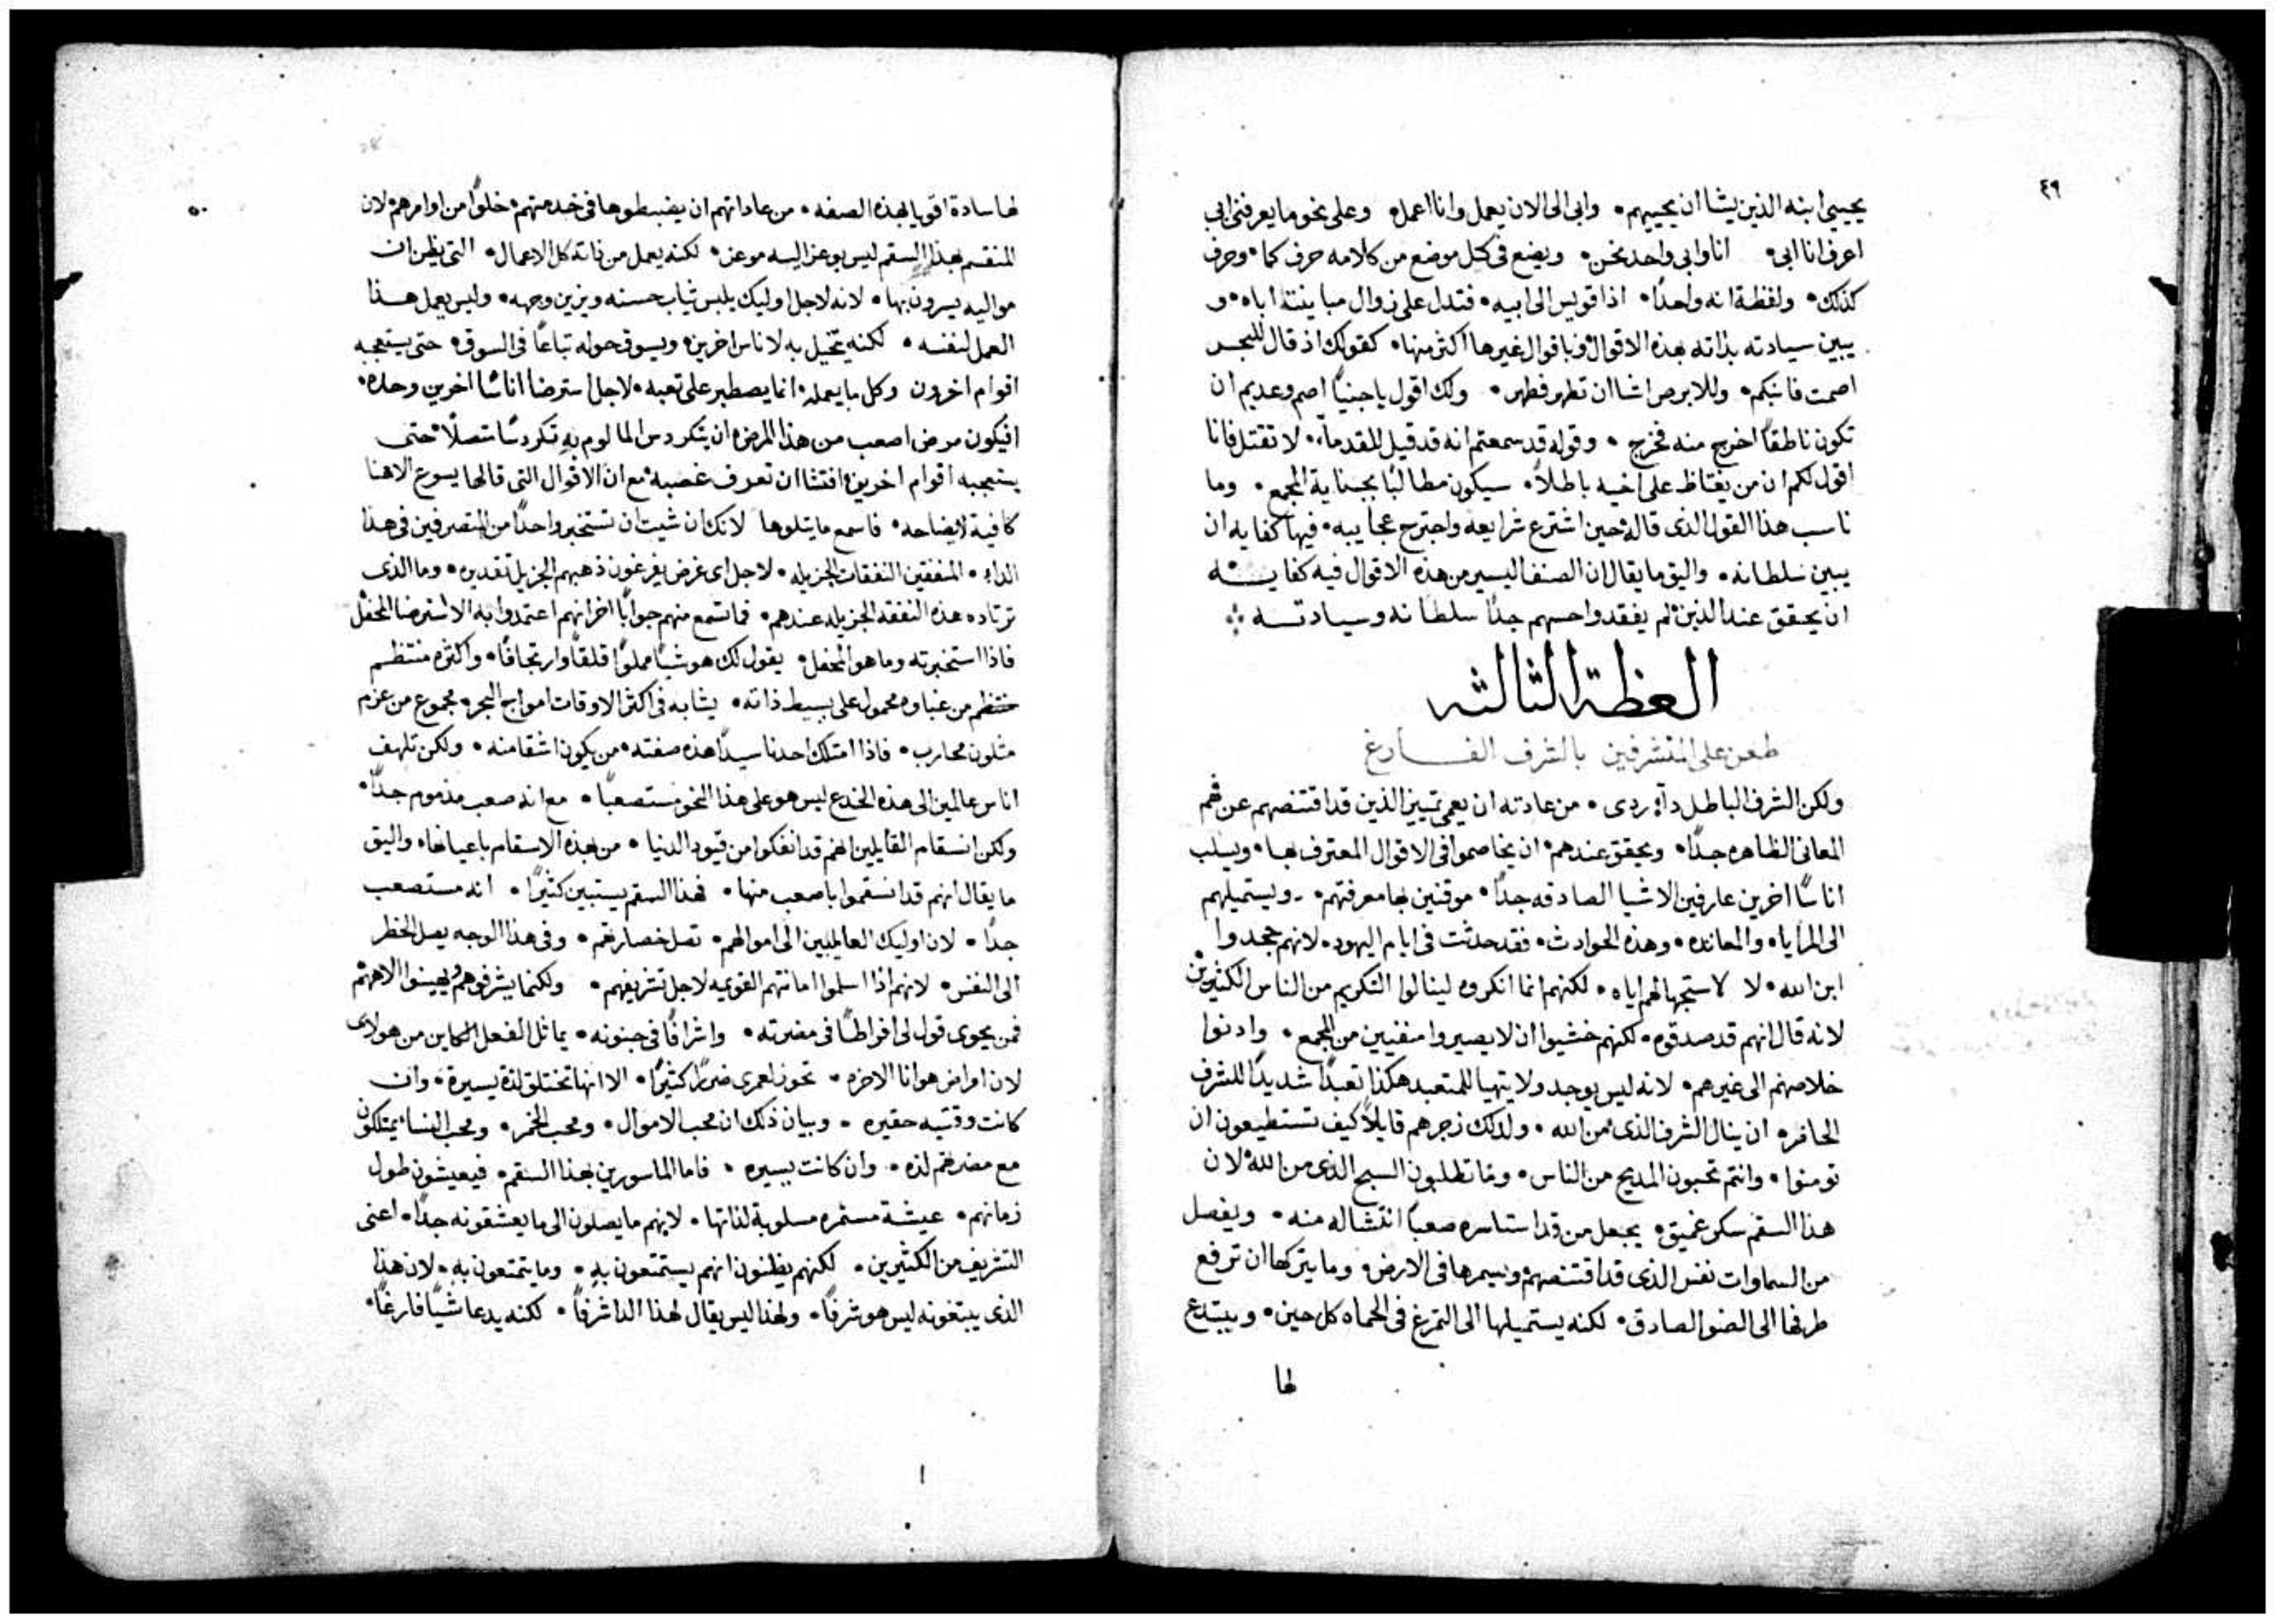 ٤٩
يحيي ابنه الذين يشا ان يحييهم • وابي الى الان يعمل وانا اعمل • وعلى نحو ما يعرفني ابي
اعرف انا ابي • انا وابي واحد نحن • ويضع في كل موضع من كلامه حرف كما • وحرف
كذلك • ولفظة انه واحدًا • اذا قويس الى ابيه • فتدل على زوال مباينته اباه • و
يبين سيادته بذاته بهذه الاقوال وباقوال غيرها اكثر منها • كقولك اذ قال للبحر
اصمت فانبكم • وللابرص اشا ان تطهر فطهر • ولك اقول يا جنيًا اصم وعديم ان
تكون ناطقًا اخرج منه فخرج • وقوله قد سمعتم انه قد قيل للقدمآء • لا تقتل فانا
اقول لكم ان من يغتاظ على اخيه باطلاً • سيكون مطالبًا بجناية المجمع • وما
ناسب هذا القول الذي قاله حين اشترع شرايعه واجترح عجايبه • فيها كفايه ان
يبين سلطانه • واليق ما يقال ان الصنف اليسير من هذه الاقوال فيه كفايـــه
ان يحقق عند الذين لم يفقدوا حسهم جدًا سلطانه وسيادتــه
العظة الثالثه
طعن على المتشرفين بالشرف الفـــارغ
ولكن الشرف الباطل دآء ردي • من عادته ان يعمي تمييز الذين قد اقتنصهم عن فهم
المعاني الظاهره جدًا • ويحقق عندهم ان يخاصموا في الاقوال المعترف بها • ويسلب
اناسًا اخرين عارفين الاشيا الصادقه جدًا • موقنين بها معرفتهم • ويستميلهم
الى المرايا • والمعانده • وهذه الحوادث • فقد حدثت في ايام اليهود • لانهم جحدوا
ابن الله • لا لاستجهالهم اياه • لكنهم انما انكروه لينالوا التكريم من الناس الكثيرين
لانه قال انهم قد صدقوه • لكنهم خشيوا ان لا يصيروا منفيين من المجمع • وادنوا
خلاصهم الى غيرهم • لانه ليس يوجد ولا يتهيا للمتعبد هكذا تعبدًا شديدًا للشرف
الحاضر • ان ينال الشرف الذي من الله • ولذلك زجرهم قايلاً كيف تستطيعون ان
تومنوا • وانتم تحبون المديح من الناس • وما تطلبون السبح الذي من الله لان
هذا السقم سكر عميق • يجعل من قد استاسره صعبًا انتشاله منه • ويفصل
من السماوات نفس الذي قد اقتنصهم ويسمرها في الارض • وما يتركها ان ترفع
طرفها الى الضو الصادق • لكنه يستميلها الى التمرغ في الحماه كل حين • ويبتدع
لها
٥٠
لها سادة اقويا بهذه الصفه • من عاداتهم ان يضبطوها في خدمتهم • خلوًا من اوامرهم • لان
المنقسم بهذا السقم ليس يوعز اليه موعز • لكنه يعمل من ذاته كل الاعمال • التي يظن ان
مواليه يسرون بها • لانه لاجل اوليك يلبس ثياب حسنه ويزين وجهه • وليس يعمل هــذا
العمل لنفسه • لكنه يتخيل به لاناس اخرين • ويسوق حوله تباعًا في السوق • حتى يستعجبه
اقوام اخرون وكل ما يعمله • انما يصطبر على تعبه • لاجل استرضا اناسًا اخرين وحده •
افيكون مرض اصعب من هذا المرض • ان يتكردس المالوم به تكردسًا متصلًا • حتى
يستعجبه اقوام اخرين • افتشا ان تعرف غصبه • مع ان الاقوال التي قالها يسوع الاهنا
كافية لايضاحه • فاسمع ما يتلوها لانك ان شيت ان تستخبر واحدًا من المتصرفين في هذا
الداء • المنفقين النفقات الجزيله • لاجل اي غرض يفرغون ذهبهم الجزيل تقديره • وما الذي
ترتاده هذه النفقه الجزيله عندهم • فما تسمع منهم جوابًا اخر انهم اعتمدوا به الا استرضا المحفل
فاذا استخبرته وما هو المحفل • يقول لك هو شيًا مملوًا قلقًا وارتجافًا • واكثره منتظم
منتظم من غباوه محمول على بسيط ذاته • يشابه في اكثر الاوقات امواج البحر • مجموع من عزم
متلون محارب • فاذا امتلك احدنا سيدًا هذه صفته • من يكون اشقا منه • ولكن تلهف
اناس عالمين الى هذه الخدع ليس هو على هذا النحو مستصعبًا • مع انه صعب مذموم جدًا •
ولكن انسقام القايلين انهم قد انفكوا من قيود الدنيا • من هذه الاسقام باعيانها • واليق
ما يقال انهم قد انسقموا باصعب منها • فهذا السقم يستبين كثيرًا • انه مستصعب
جدًا • لان اوليك العالميين الى اموالهم • تصل خصارتهم • وفي هذا الوجه يصل الخطر
الى النفس • لانهم اذا اسلموا امانتهم القويمه لاجل تشريفهم • ولكيما يشرفوهم ويهينوا الاههم
فمن يحوي قول لي افراطًا في مضرته • واشرافًا في جنونه • يماثل الفعل الكاين من هولاي
لان امراض هوانا الاخره • تحوز لعمري ضررًا كثيرًا • الا انها تختلق لذة يسيرة • وان
كانت وقتيه حقيره • وبيان ذلك ان محب الاموال • ومحب الخمر • ومحب النسا • يمتلكون
مع مضرتهم لذه • وان كانت يسيره • فاما الماسورين بهذا السقم • فيعيشون طول
زمانهم • عيشة مستمره مسلوبة لذاتها • لانهم ما يصلون الى ما يعشقونه جدًا • اعني
التشريف من الكثيرين • لكنهم يظنون انهم يستمتعون به • وما يتمتعون به • لان هذا
الذي يبتغونه ليس هو شرفًا • ولهذا ليس يقال لهذا الدا شرفًا • لكنه يدعا شيًا فارغًا •